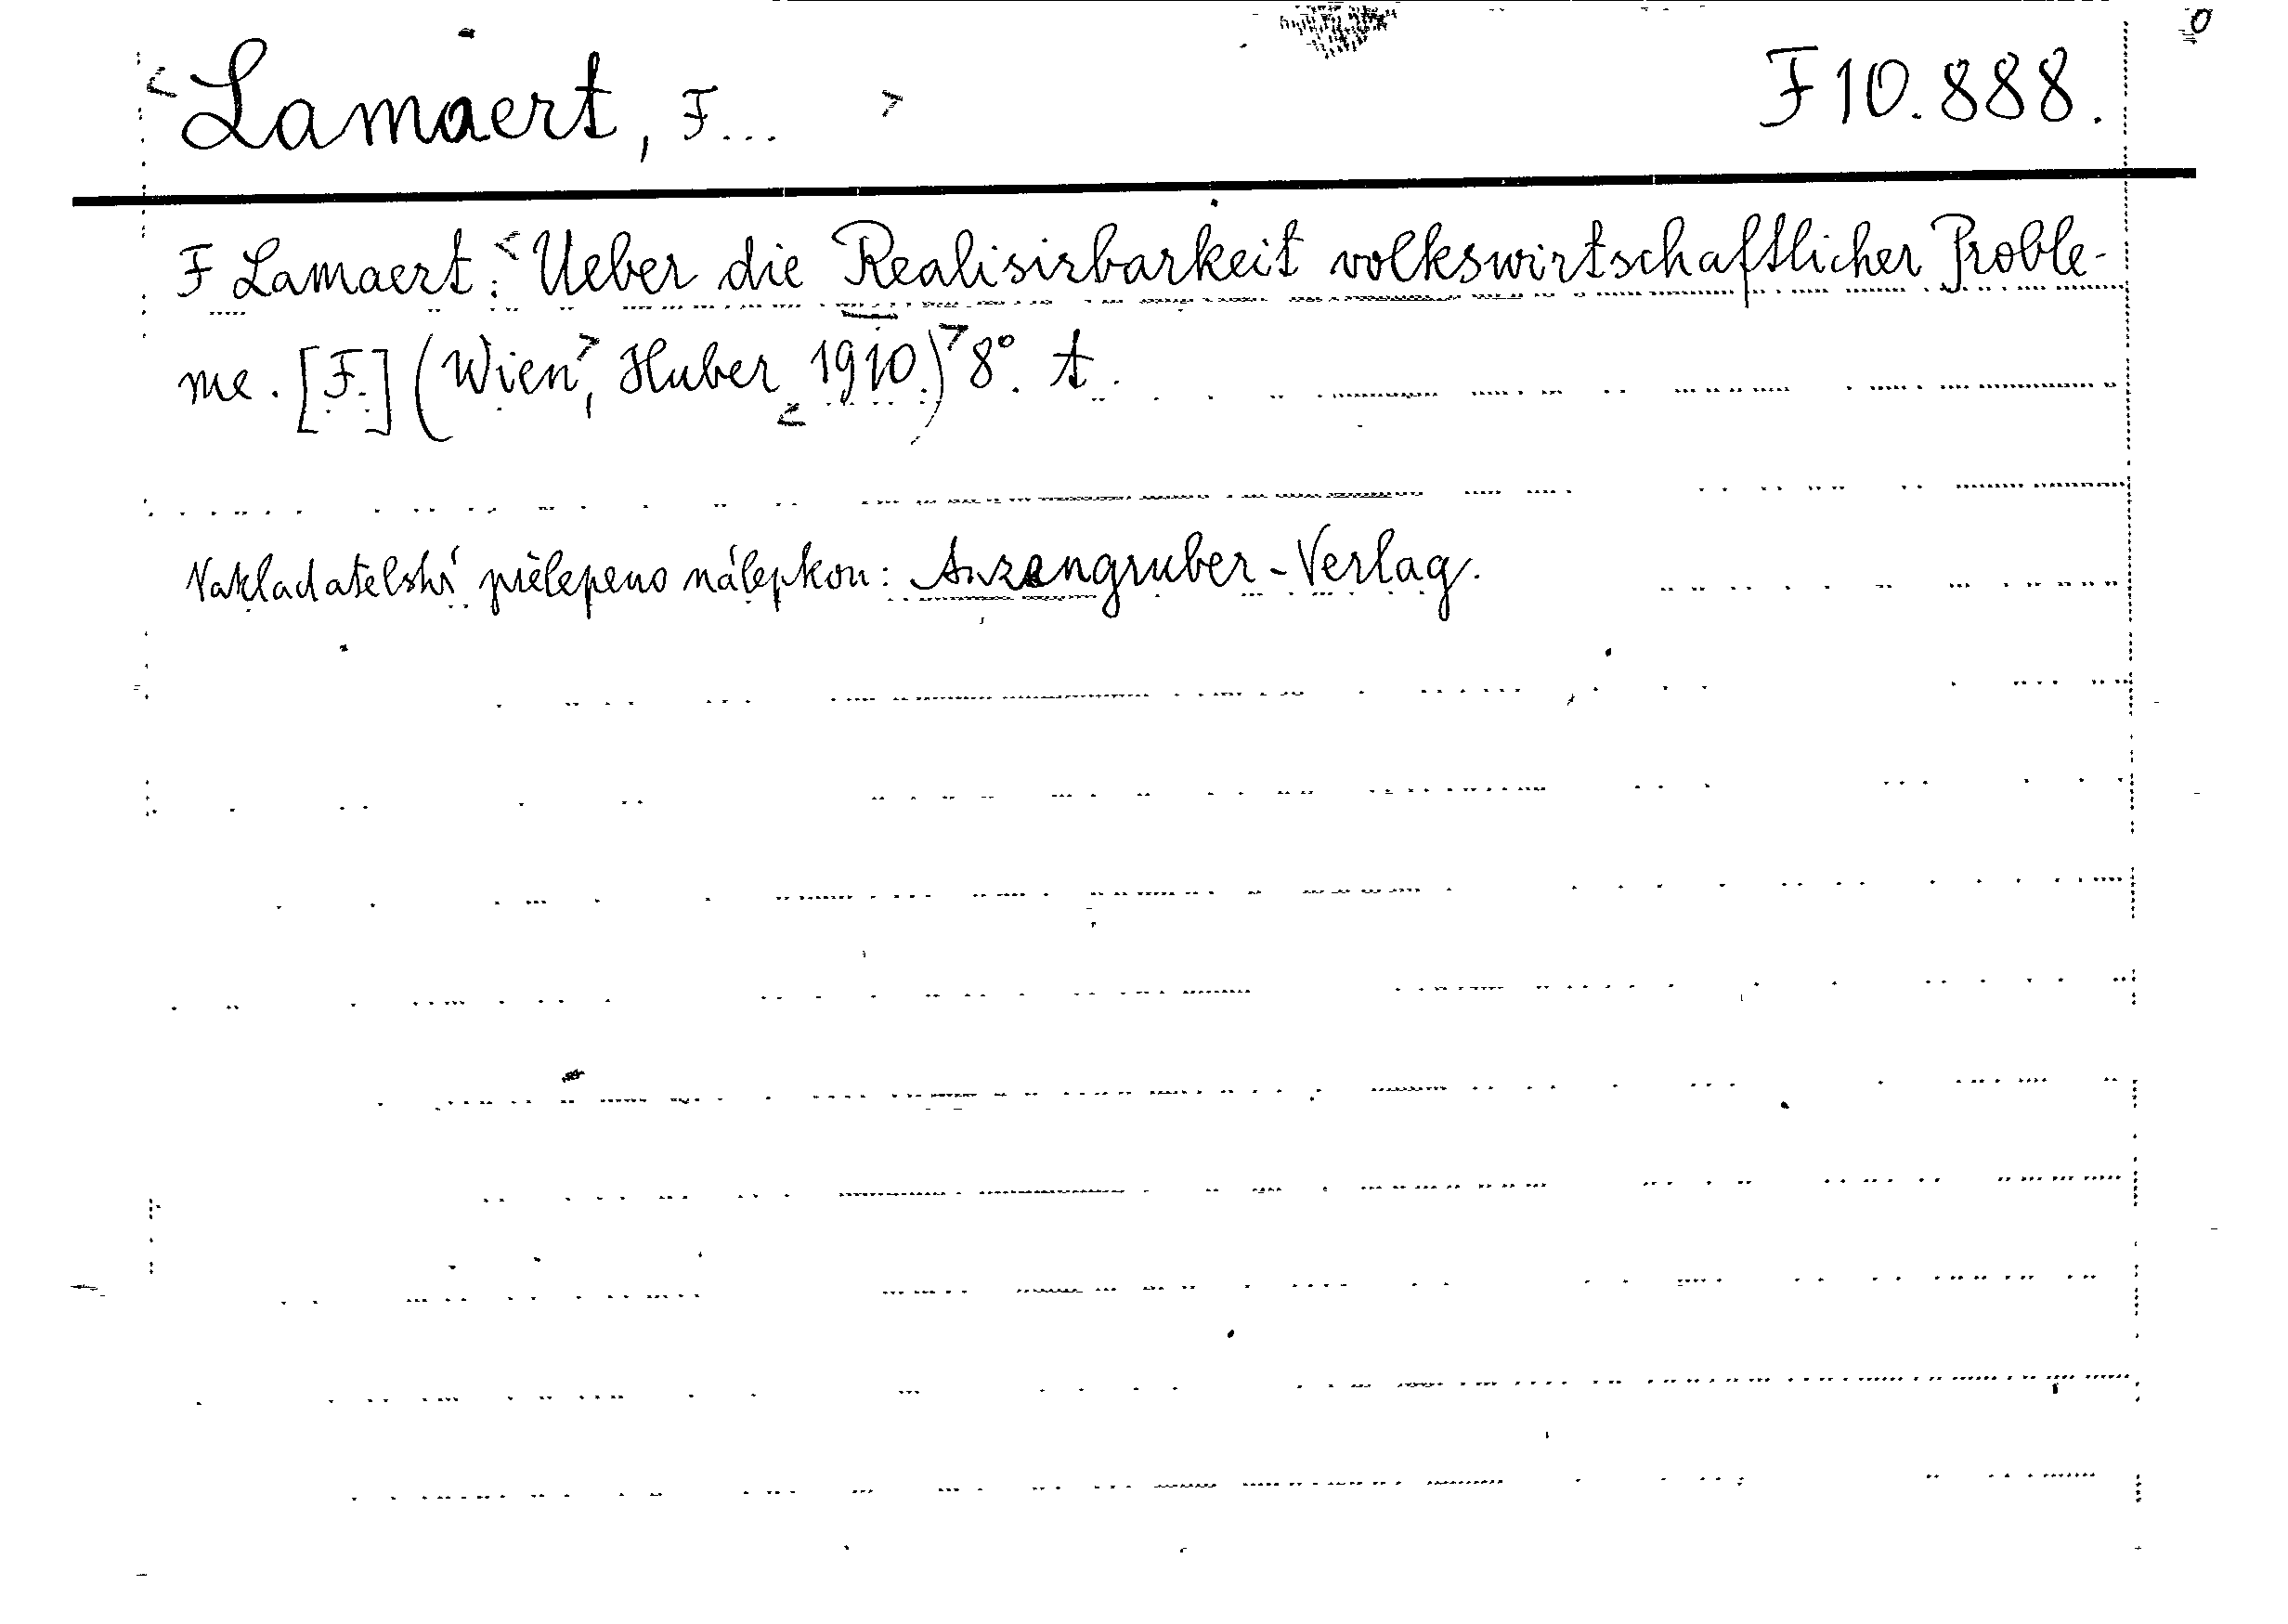 <Lamaert, F... > F 10.888.
F Lamaert: <Ueber die Realisirbarkeit volkswirtschaftlicher Proble-
me. [F.] (Wien>, Huber <1910.)> 8°. A.
Nakladatelství přelepeno nálepkou: Anzengruber-Verlag.